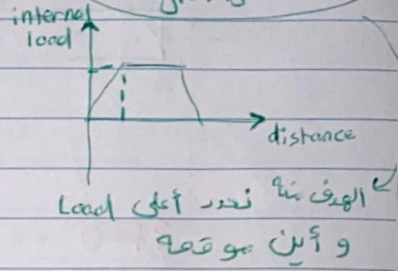 internal
load
distance
الهدف منه نحدد أعلى Load
و أين موقعه